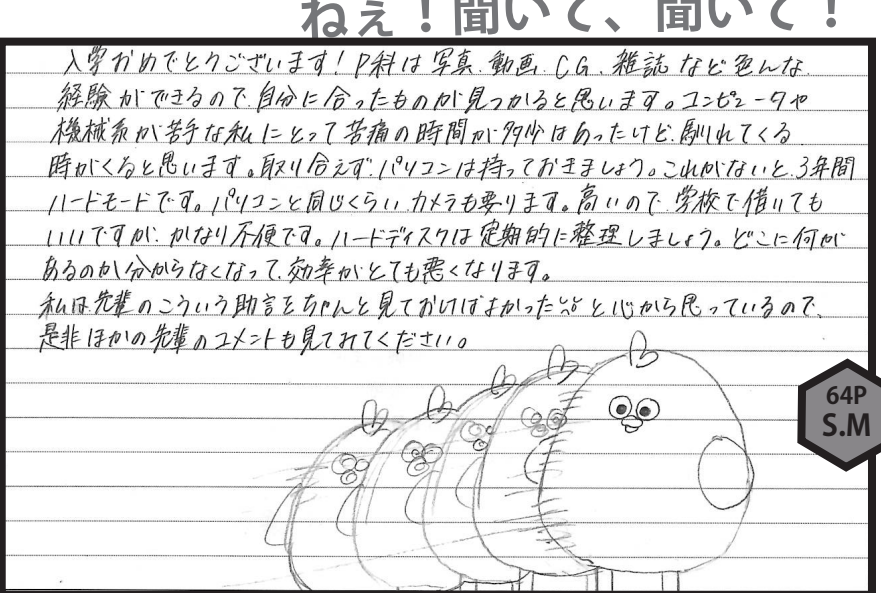 ねぇ！聞いて、聞いて！
入学おめでとうございます！P科は写真、動画、CG、雑誌など色んな
経験ができるので、自分に合ったものが見つかると思います。コンピュータや
機械系が苦手な私にとって苦痛の時間が多少はあったけど、馴れてくる
時がくると思います。取り合えず、パソコンは持っておきましょう。これがないと、3年間
ハードモードです。パソコンと同じくらいカメラも要ります。高いので、学校で借りても
いいですが、かなり不便です。ハードディスクは定期的に整理しましょう。どこに何が
あるのか分からなくなって、効率がとても悪くなります。
私は先輩のこういう助言をちゃんと見ておけばよかった と心から思っているので、
是非ほかの先輩のコメントも見てみてください。
64P
S.M